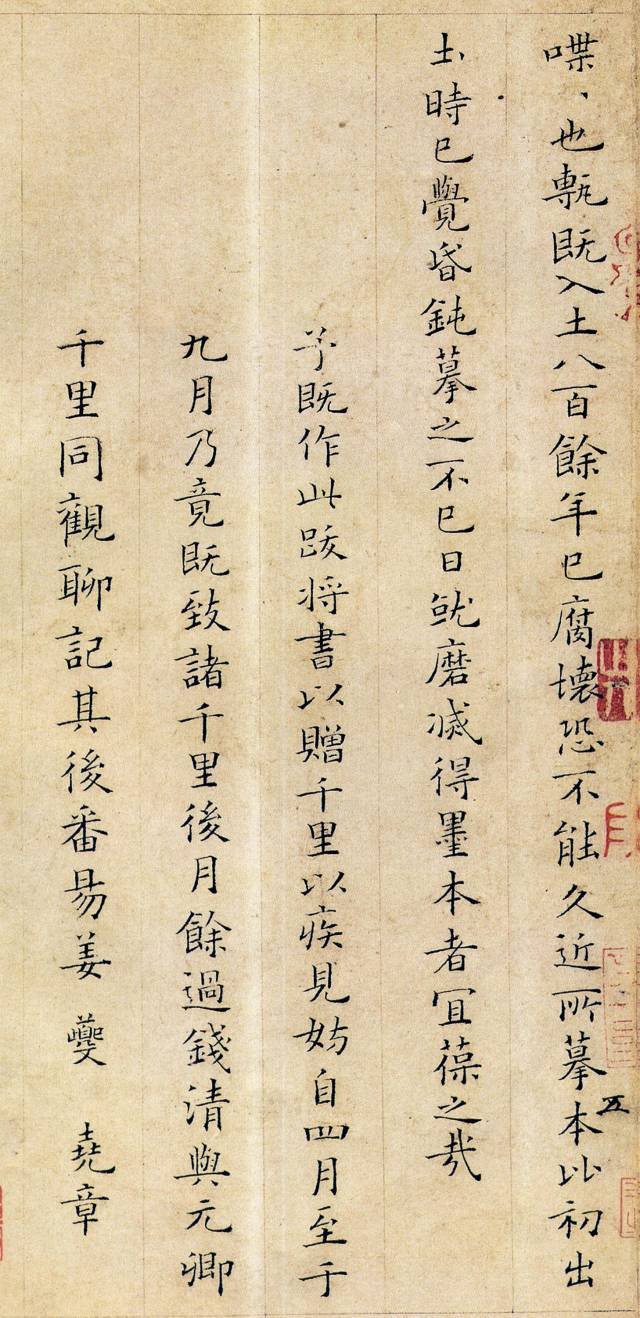 喋丶也甎既入土八百餘年已腐壞恐不能久近所摹本比初出
土時已覺昏鈍摹之不已日就磨滅得墨本者宜葆之哉
予既作此跋將書以贈千里以疾見妨自四月至于
九月乃竟既致諸千里後月餘過錢清與元卿
千里同觀聊記其後番昜姜夔 堯章
五